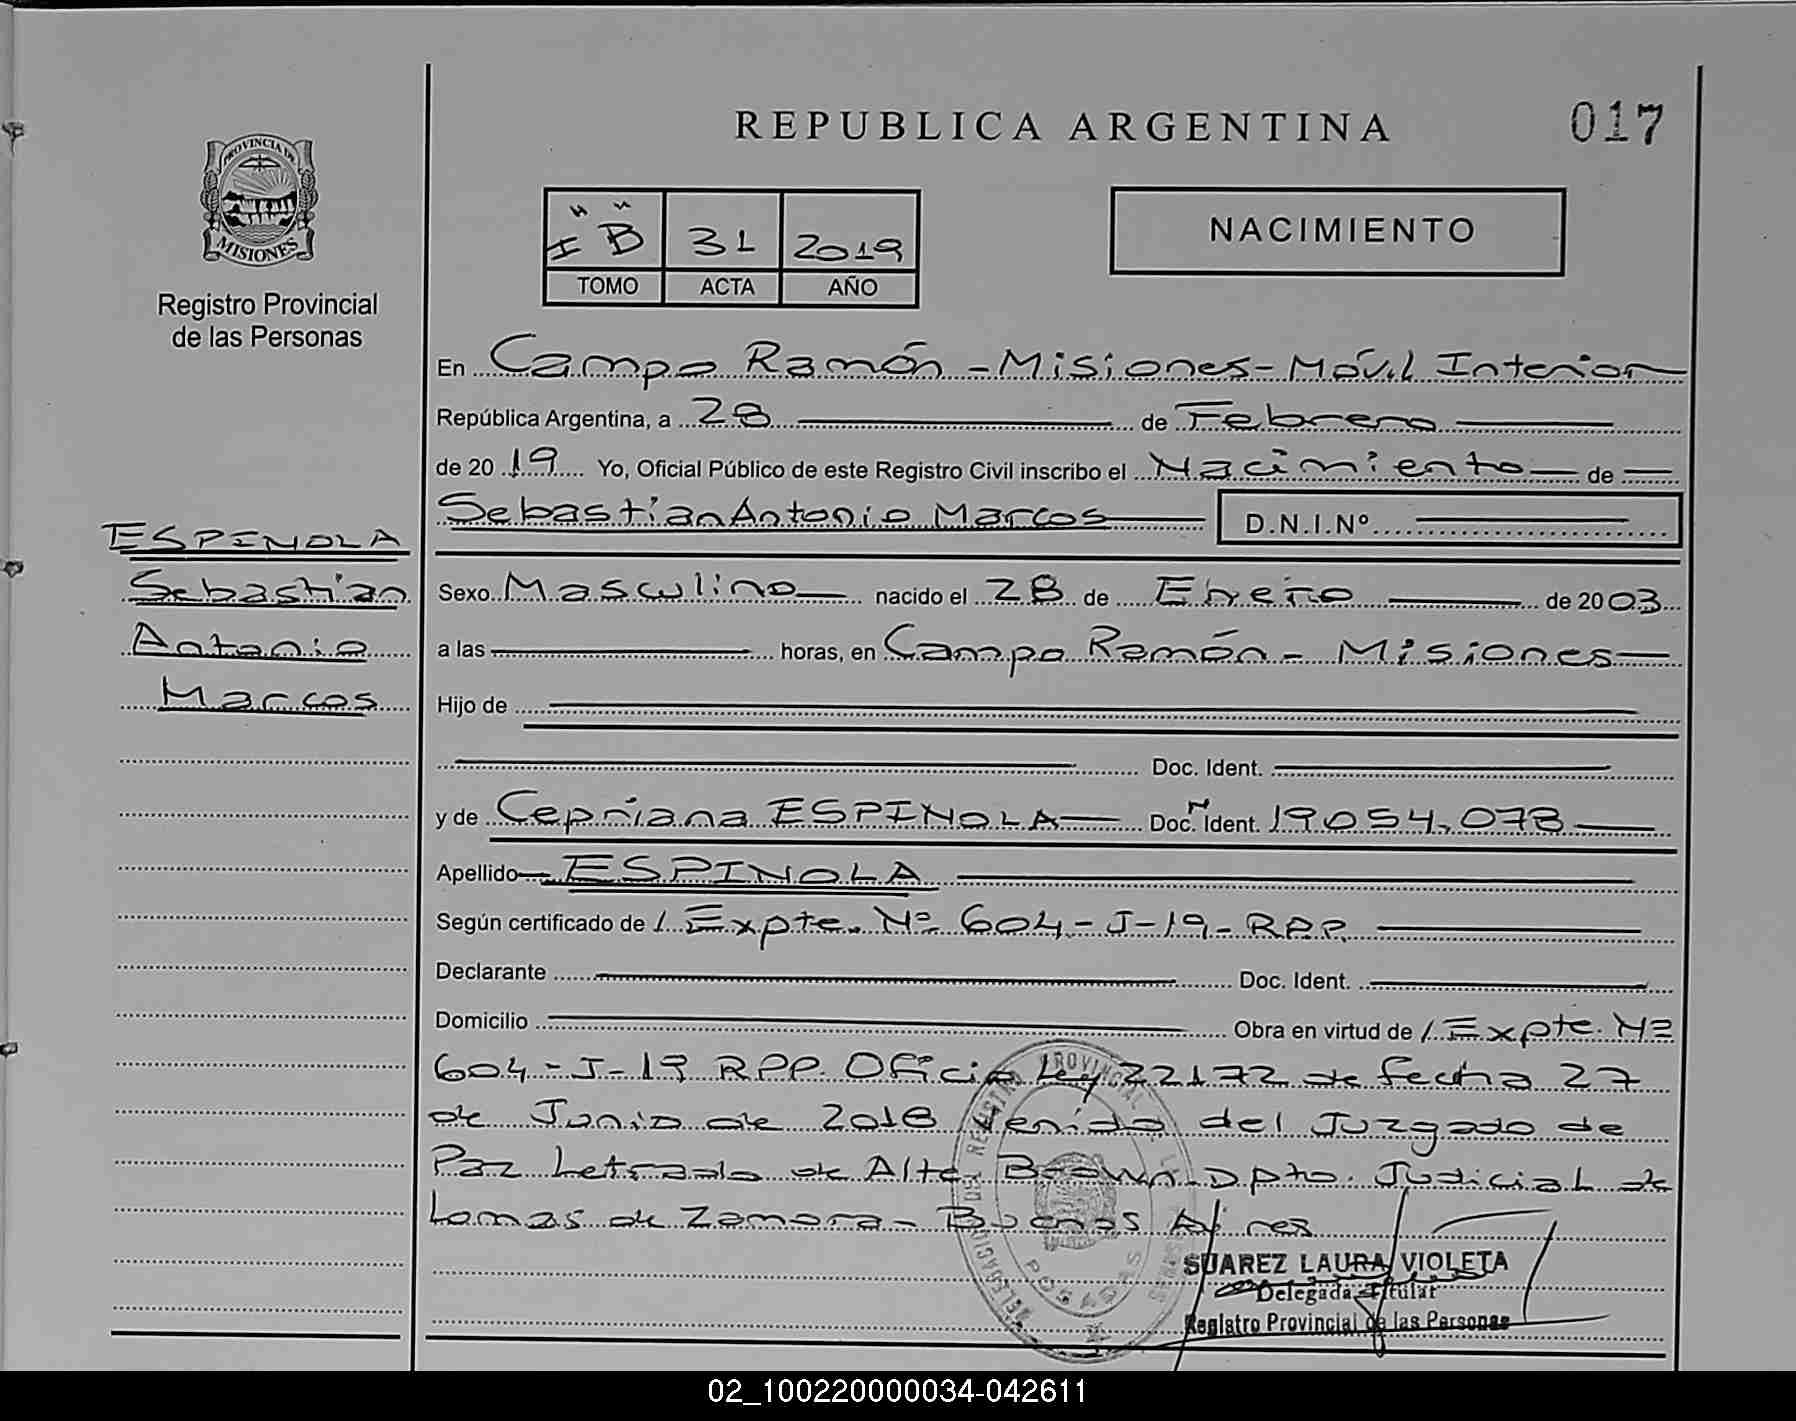 REPUBLICA ARGENTINA
017
PROVINCIA DE
MISIONES
Registro Provincial
de las Personas
I "B" 31 2019
TOMO ACTA AÑO
NACIMIENTO
En Campo Ramón - Misiones - Móvil Interior
República Argentina, a 28 de Febrero
de 2019 Yo, Oficial Público de este Registro Civil inscribo el Nacimiento de
Sebastian Antonio Marcos D.N.I.Nº
ESPINOLA
Sebastian
Antonio
Marcos
Sexo Masculino nacido el 28 de Enero de 2003
a las horas, en Campo Ramón - Misiones
Hijo de
Doc. Ident.
y de Cepriana ESPINOLA Doc. Ident. 19054.078
Apellido ESPINOLA
Según certificado de /. Expte. Nº 604-J-19-RPP.
Declarante Doc. Ident.
Domicilio Obra en virtud de /. Expte. Nº
604-J-19 RPP. Oficio Ley 22172 de fecha 27
de Junio de 2018 venido del Juzgado de
Paz Letrado de Alte Brown - Dpto. Judicial de
Lomas de Zamora - Buenos Aires
POSADAS
SUAREZ LAURA VIOLETA
Delegada Titular
Registro Provincial de las Personas
02_100220000034-042611